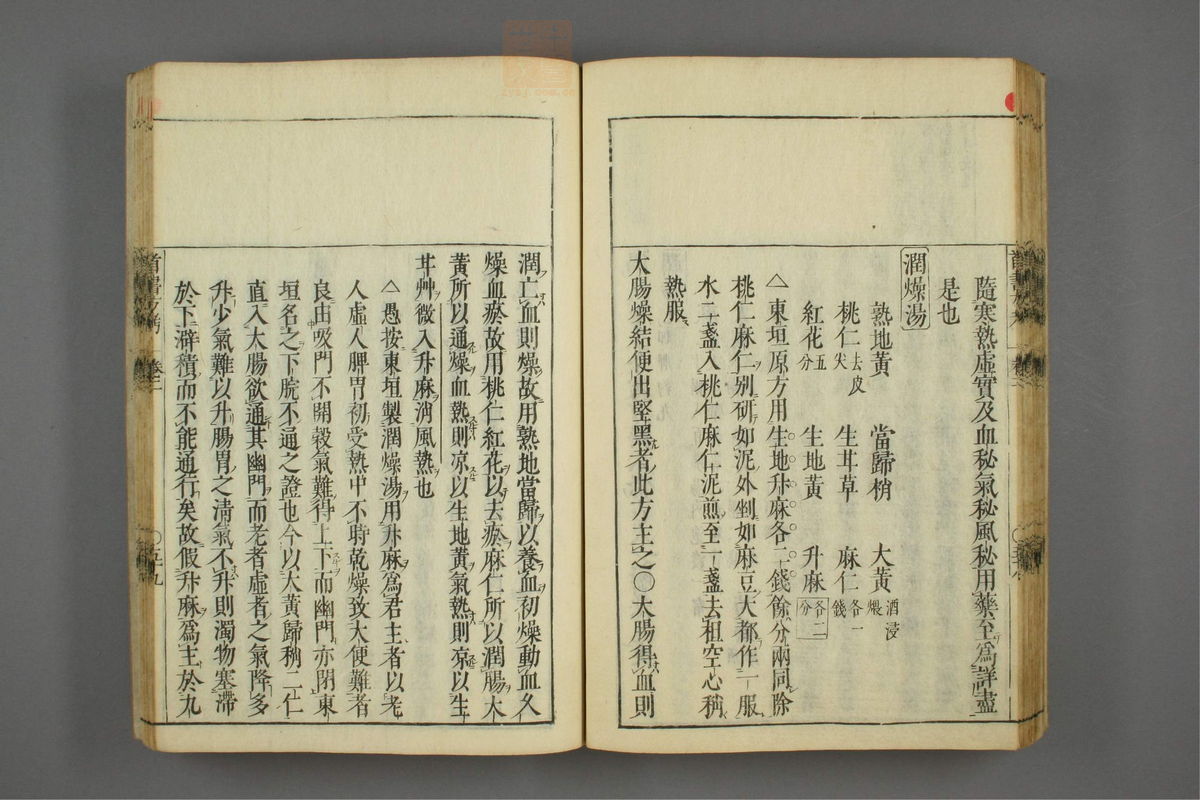 隨寒熱虛實及血秘氣秘風秘用藥至爲詳盡
是也
潤燥湯
熟地黃 當歸梢 大黃酒浸煨
桃仁去皮尖 生甘草 麻仁各一錢
紅花五分 生地黃 升麻各二分
△東垣原方用生地升麻各二錢餘分兩同除
桃仁麻仁別研如泥外剉如麻豆大都作一服
水二盞入桃仁麻仁泥煎至一盞去柤空心稍
熱服
大腸燥結便出堅黑者此方主之○大腸得血則
潤亡血則燥故用熟地當歸以養血初燥動血久
燥血瘀故用桃仁紅花以去瘀麻仁所以潤腸大
黃所以通燥血熱則凉以生地黃氣熱則凉以生
甘艸微入升麻消風熱也
△愚按東垣製潤燥湯用升麻爲君主者以老
人虛人脾胃初受熱中不時乾燥致大便難者
良由吸門不開穀氣難得上下而幽門亦閉東
垣名之下脘不通之證也今以大黃歸稍二仁
直入大腸欲通其幽門而老者虛者之氣降多
升少氣難以升腸胃之淸氣不升則濁物塞滯
於下澼積而不能通行矣故假升麻爲主於九